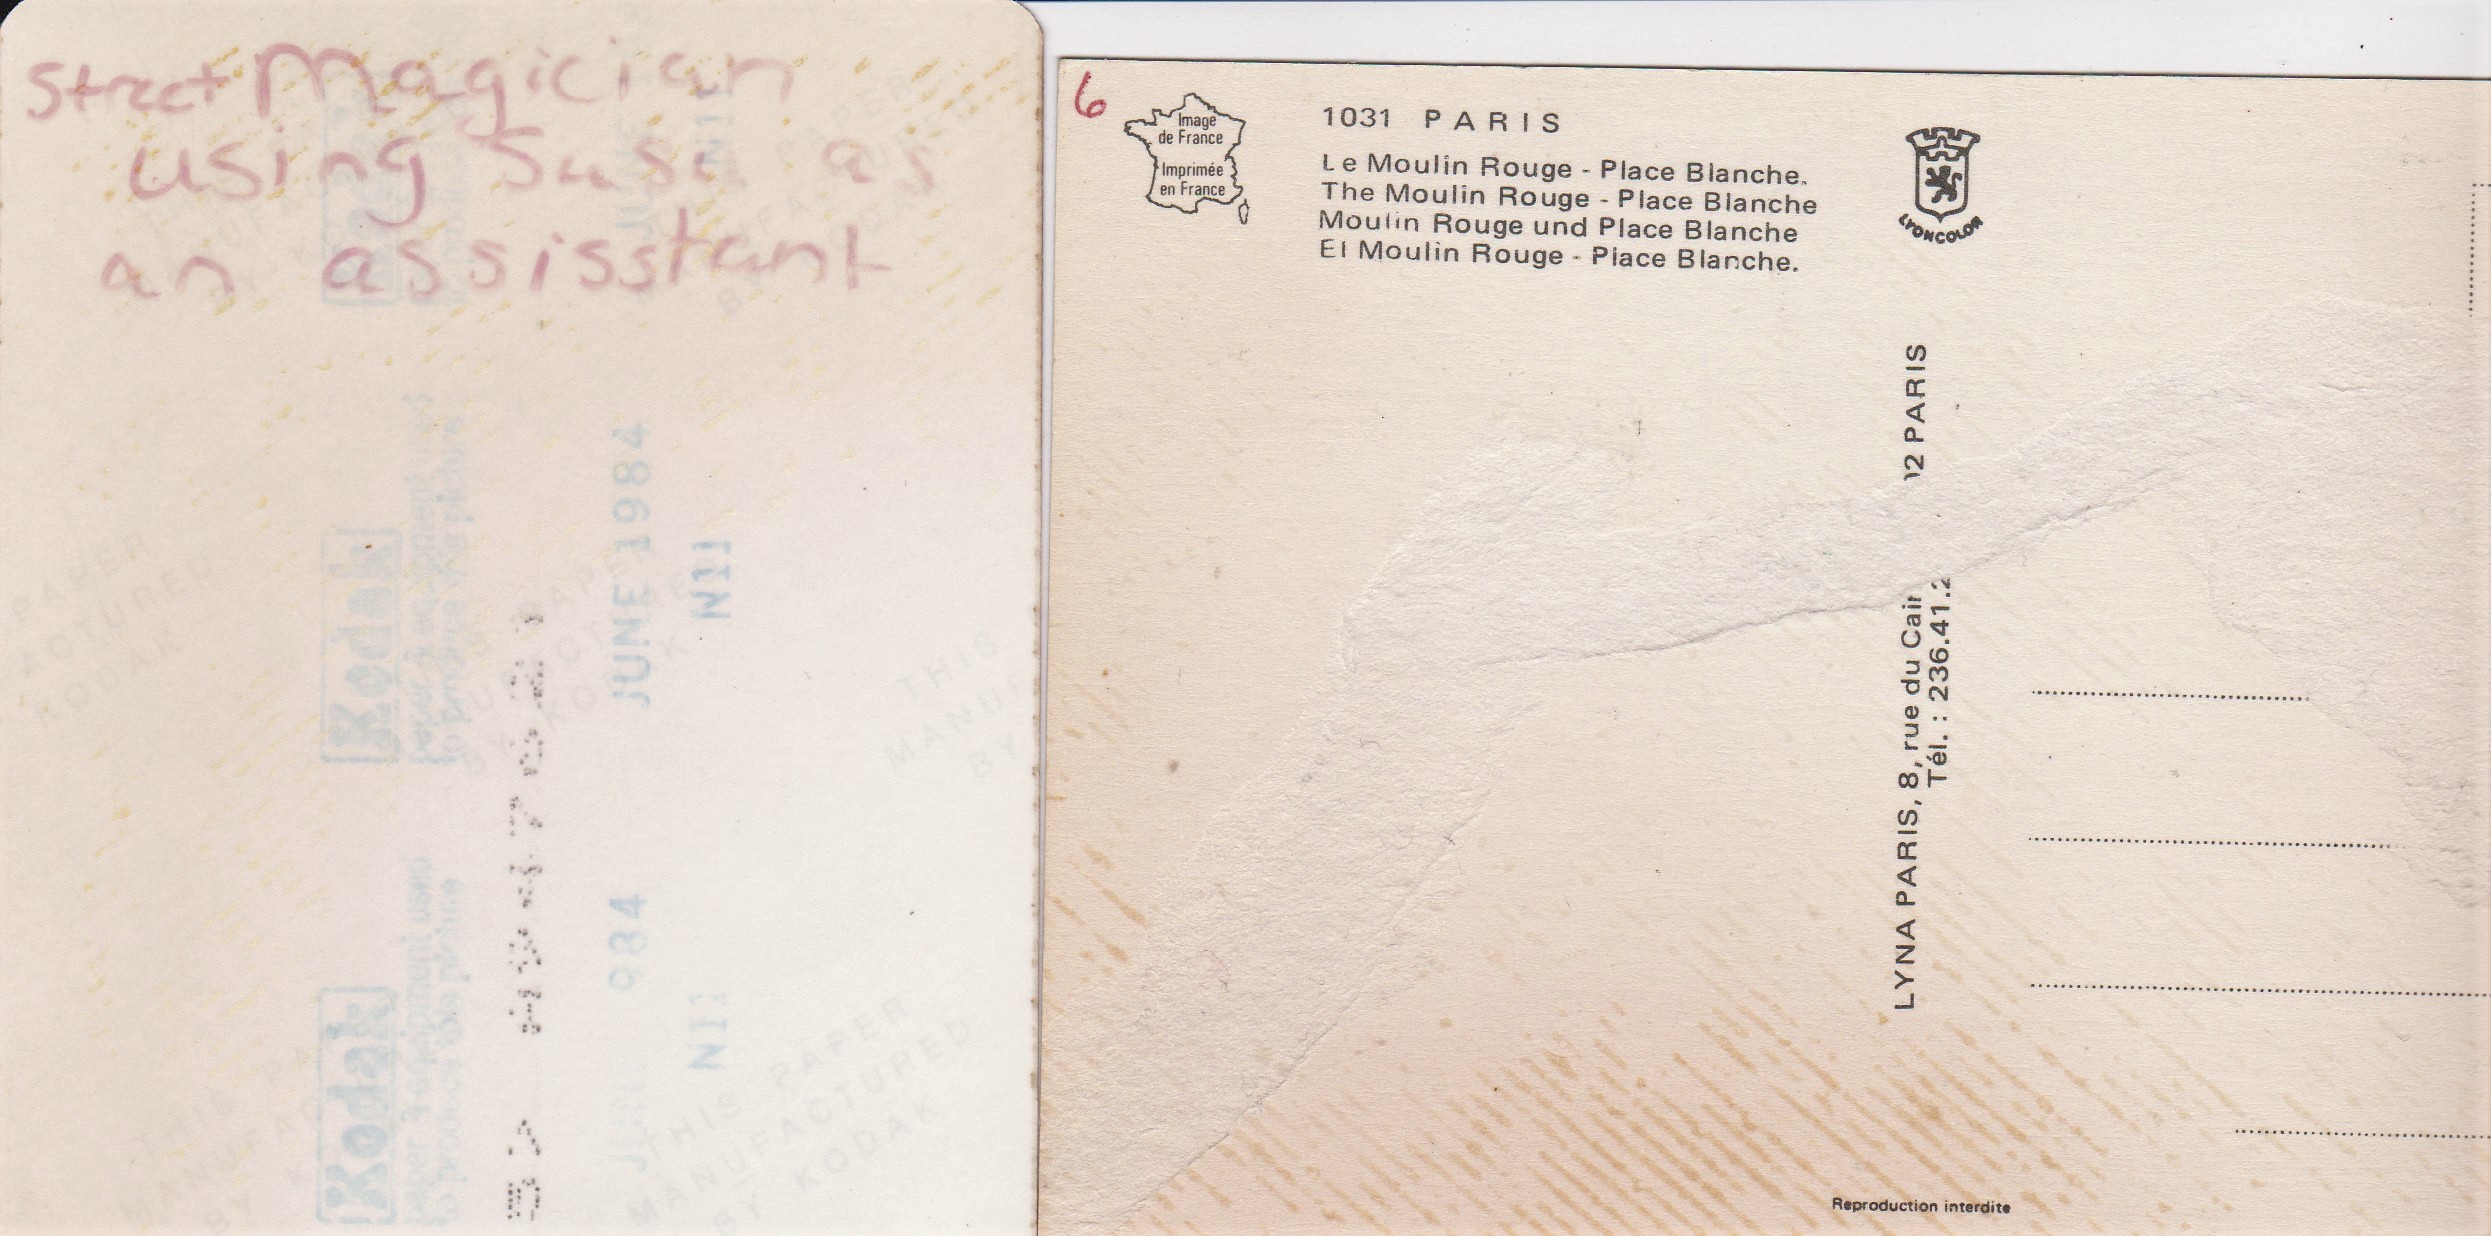 street Magician
using Susi as
an assisstant
Kodak
JUNE 1984
N11
Kodak
984
N11
THIS PAPER
MANUFACTURED
BY KODAK
6
Image
de France
Imprimée
en France
1031 PARIS
Le Moulin Rouge - Place Blanche.
The Moulin Rouge - Place Blanche
Moulin Rouge und Place Blanche
El Moulin Rouge - Place Blanche.
LYONCOLOR
LYNA PARIS, 8, rue du Cair
02 PARIS
Tél. : 236.41.2
Reproduction interdite